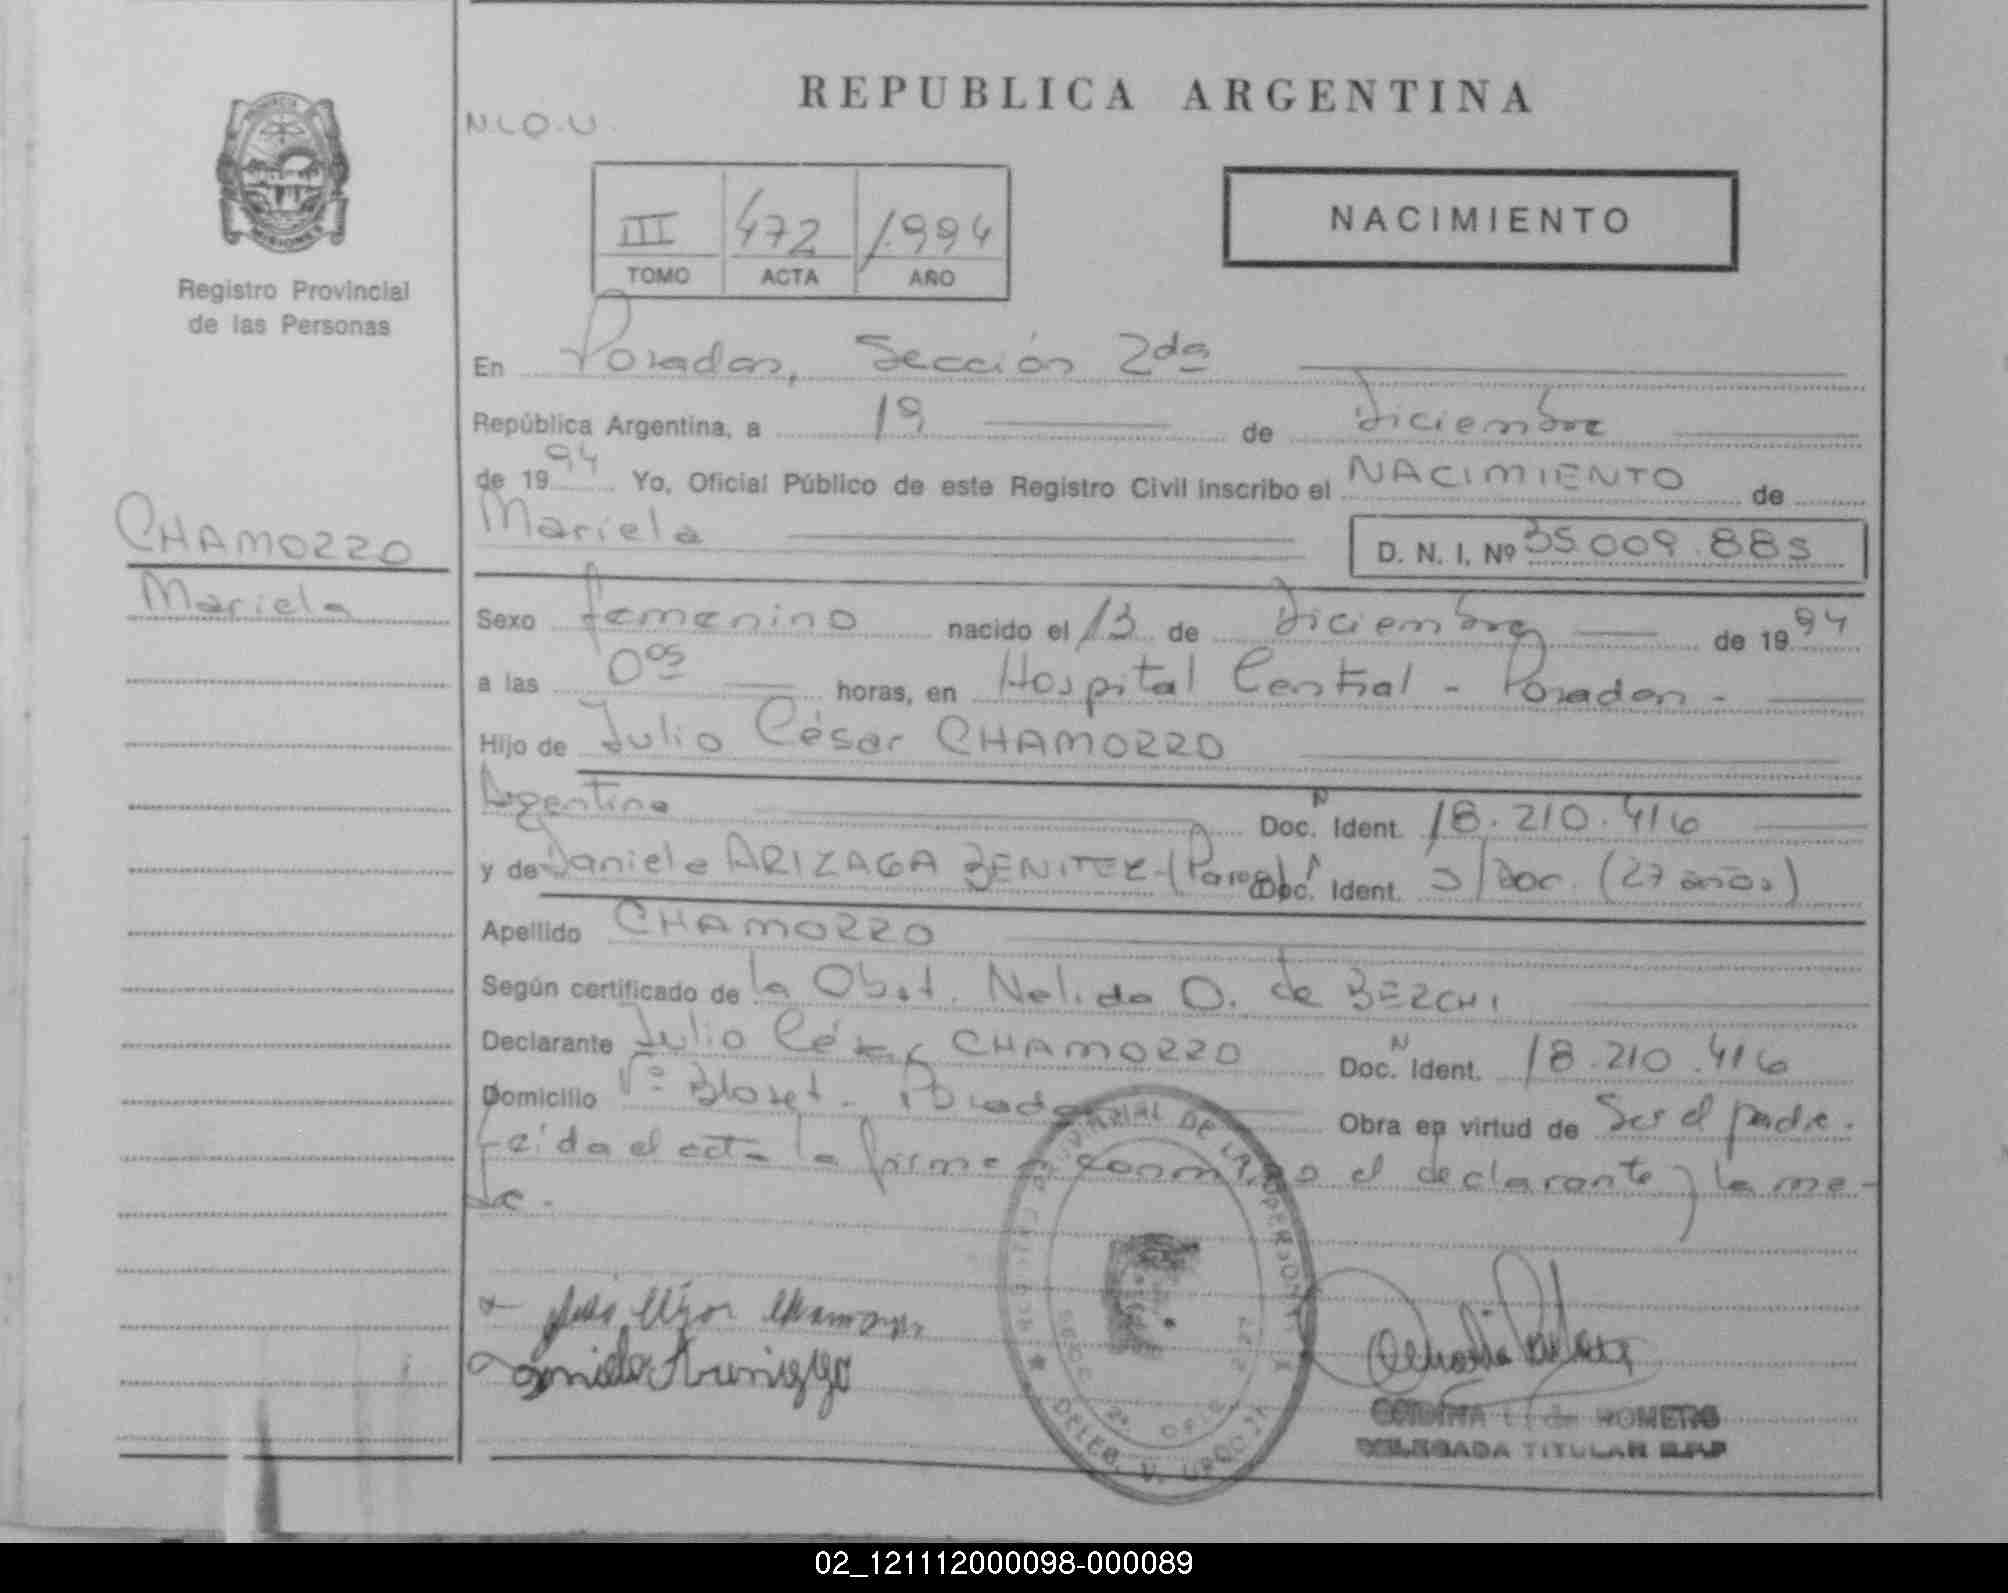 REPUBLICA ARGENTINA
N.L.O.U.
III 472 1994
TOMO ACTA AÑO
NACIMIENTO
MISIONES
Registro Provincial
de las Personas
CHAMORRO
Mariela
En Posadas, Sección 2da
República Argentina, a 19 de Diciembre
de 1994 Yo, Oficial Público de este Registro Civil inscribo el NACIMIENTO de
Mariela D. N. I. Nº 35.009.885
Sexo femenino nacido el 13 de Diciembre de 1994
a las 0 05 horas, en Hospital Central - Posadas -
Hijo de Julio César CHAMORRO
Argentina Doc. Ident. 18.210.416
y de Daniela ARIZAGA BENITEZ - Doc. Ident. S/Doc. (27 años)
Apellido CHAMORRO
Según certificado de la Obst. Nelida O. de BERCHI
Declarante Julio César CHAMORRO Doc. Ident. 18.210.416
Domicilio Vº Bloset - Posadas Obra en virtud de Ser el padre.
Leida el acta la firman conmigo el declarante y la ma-
dre.
DELEGADA TITULAR R.P.P
02_121112000098-000089